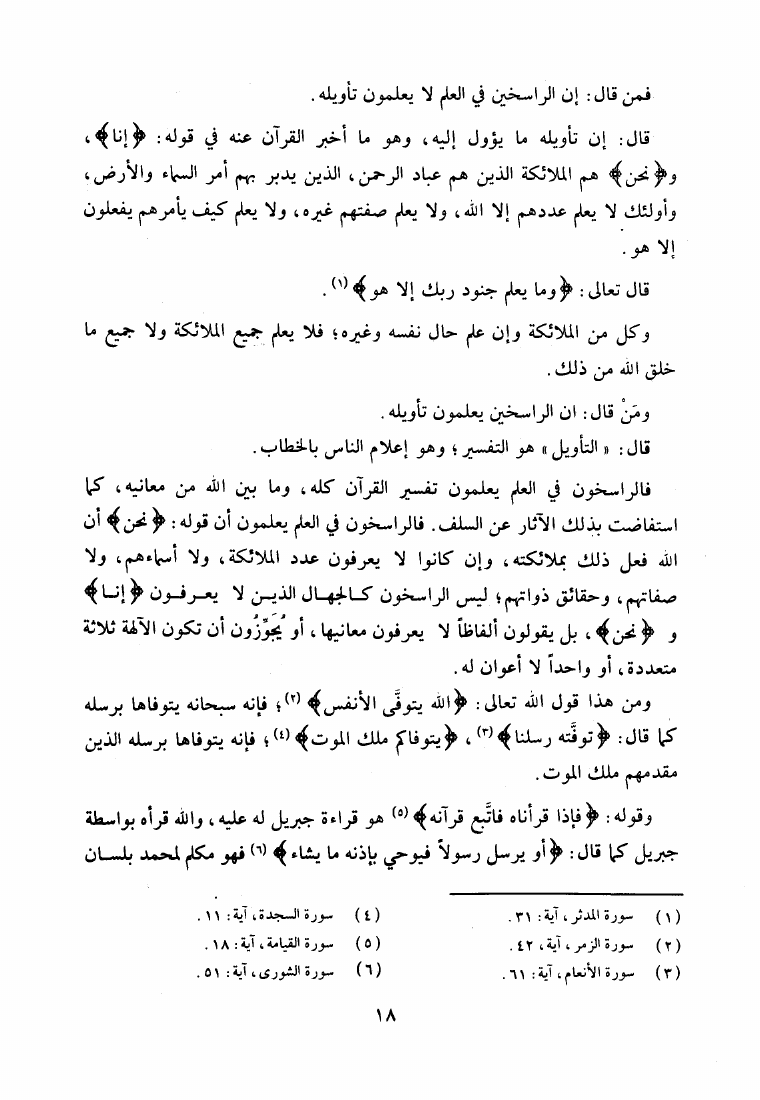 فمن قال: إن الراسخين في العلم لا يعلمون تأويله.
قال: إن تأويله ما يؤول إليه، وهو ما أخبر القرآن عنه في قوله: ﴿إنا﴾،
و﴿نحن﴾ هم الملائكة الذين هم عباد الرحمن، الذين يدبر بهم أمر السماء والأرض،
وأولئك لا يعلم عددهم إلا الله، ولا يعلم صفتهم غيره، ولا يعلم كيف يأمرهم يفعلون
إلا هو.
قال تعالى: ﴿وما يعلم جنود ربك إلا هو﴾(١).
وكل من الملائكة وإن علم حال نفسه وغيره؛ فلا يعلم جميع الملائكة ولا جميع ما
خلق الله من ذلك.
ومَنْ قال: ان الراسخين يعلمون تأويله.
قال: «التأويل» هو التفسير؛ وهو إعلام الناس بالخطاب.
فالراسخون في العلم يعلمون تفسير القرآن كله، وما بين الله من معانيه، كما
استفاضت بذلك الآثار عن السلف. فالراسخون في العلم يعلمون أن قوله: ﴿نحن﴾ أن
الله فعل ذلك بملائكته، وإن كانوا لا يعرفون عدد الملائكة، ولا أسماءهم، ولا
صفاتهم، وحقائق ذواتهم؛ ليس الراسخون كالجهال الذين لا يعرفون ﴿إنا﴾
و ﴿نحن﴾، بل يقولون ألفاظاً لا يعرفون معانيها، أو يُجَوِّزُون أن تكون الآلهة ثلاثة
متعددة، أو واحداً لا أعوان له.
ومن هذا قول الله تعالى: ﴿الله يتوفَّى الأنفس﴾(٢)؛ فإنه سبحانه يتوفاها برسله
كما قال: ﴿توفَّته رسلنا﴾(٣)، ﴿يتوفاكم ملك الموت﴾(٤)؛ فإنه يتوفاها برسله الذين
مقدمهم ملك الموت.
وقوله: ﴿فإذا قرأناه فاتَّبع قرآنه﴾(٥) هو قراءة جبريل له عليه، والله قرأه بواسطة
جبريل كما قال: ﴿أو يرسل رسولاً فيوحي بإذنه ما يشاء﴾(٦) فهو مكلم لمحمد بلسان
(١) سورة المدثر، آية: ٣١.
(٢) سورة الزمر، آية: ٤٢.
(٣) سورة الأنعام، آية: ٦١.
(٤) سورة السجدة، آية: ١١.
(٥) سورة القيامة، آية: ١٨.
(٦) سورة الشورى، آية: ٥١.
١٨